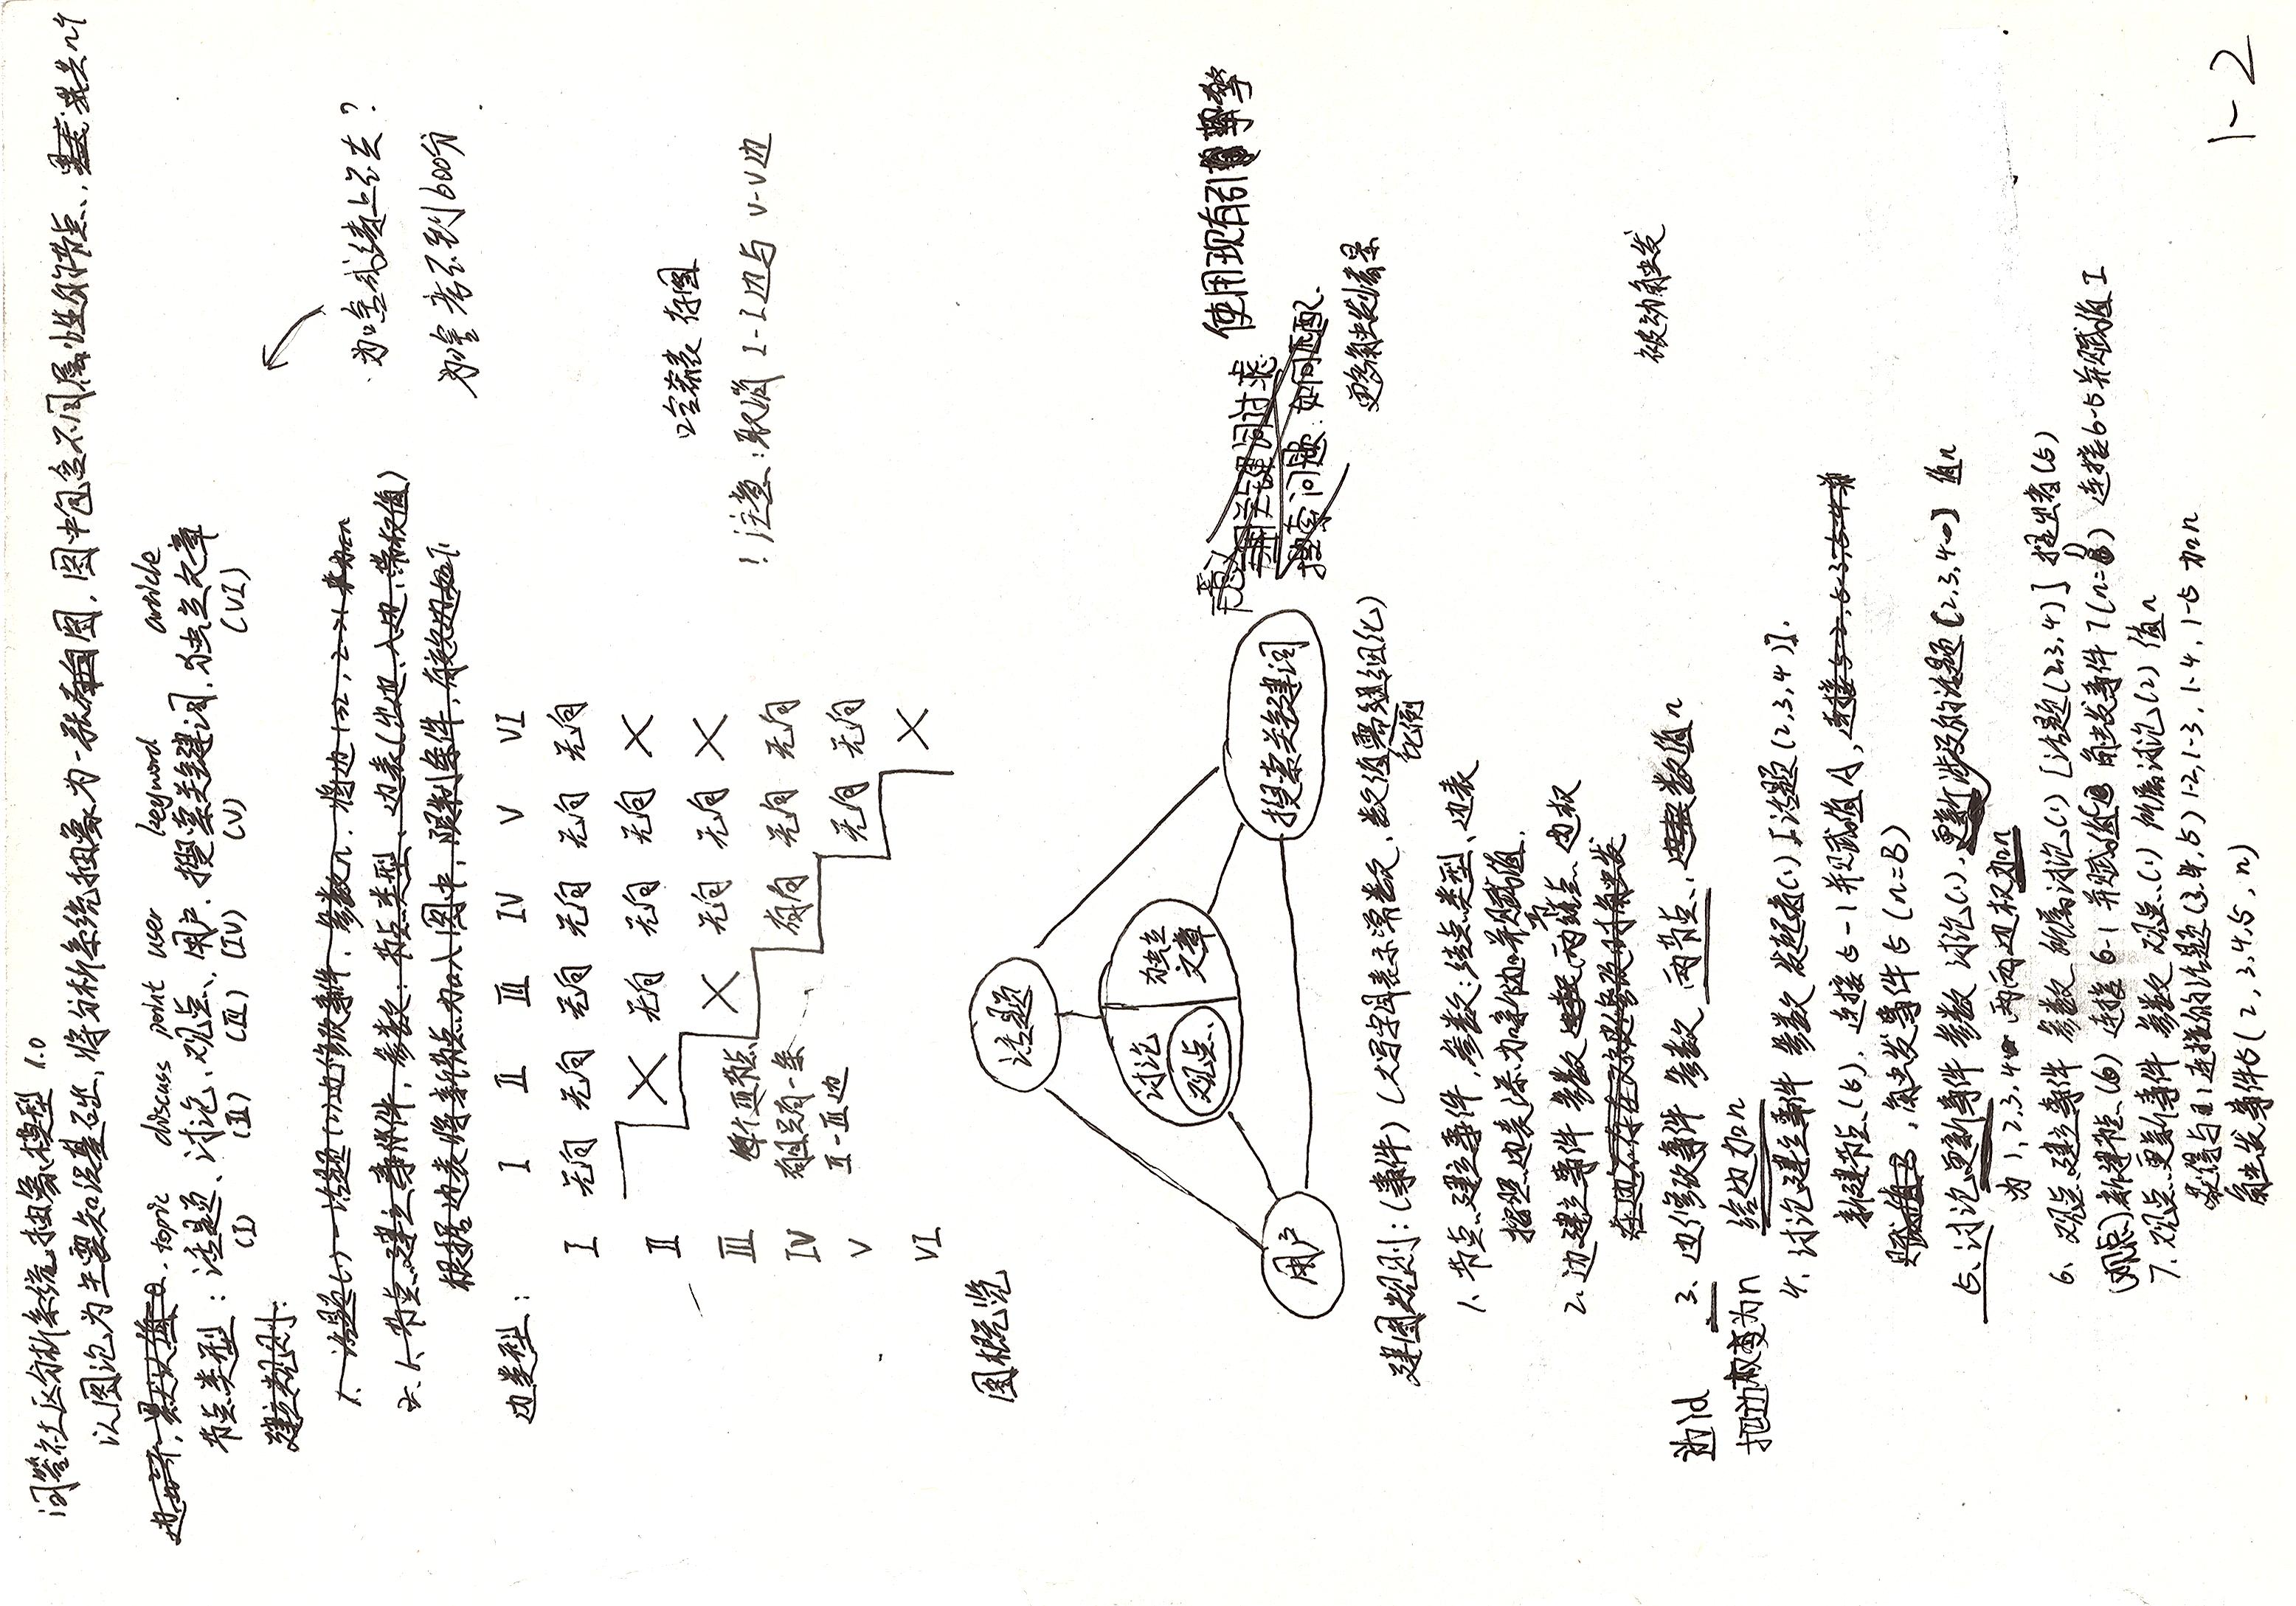 问答社区分析系统抽象模型 1.0
以图论为主要知识基础,将分析系统抽象为一张有向图,图中包含不同属性的节点,共n个
边 默认值0.
topic discuss point user keyword article
节点类型:话题、讨论、观点、用户、搜索关键词、独立文章
(I) (II) (III) (IV) (V) (VI)
建立规则:
1、话题(1)-话题(2)边修改事件,参数n,将边1→2,2→1 加n
2、1、节点建立事件,参数:节点类型、边表(出边、入边、带权值)
根据边表将新节点加入图中,限制条件,有效边如下
为啥成绩上不去?
为啥考不到600分
边类型: I II III IV V VI
I 无向 无向 无向 无向 无向 无向
II X 无向 无向 无向 X
III X 无向 无向 X
IV 有向 无向 无向
V 无向 无向
VI X
每个III节点
有且只有一条
II-III边
哈希表 存图
!注意:取消 I-I边与 V-V边
图概览
话题
讨论
观点
独立
文章
用户
搜索关键词
用关键词过滤
搜索问题:如何匹配.
使用现有引擎
更多触发情景
建图规则:(事件)(大写字母表示常数、数值需继细化)
比例
1、节点建立事件,参数:结点类型、边表
按照边表添加新边并赋值.
2、边建立事件 参数 两节点、边权
在边不存在又被修改时触发
被动触发
边id 3、边修改事件 参数 两节点、数值n
把边权变为n 给边加n
4、讨论建立事件 参数 发起者(1)[话题(2,3,4)].
新建节点(5),连接5-1并赋值A,连接5-2,5-3,5-4并
赋值B,触发事件5(n=B)
5、讨论更新事件 参数 讨论(1),更新涉及的话题[2,3,4] 值n
为1,2,3,4 两两边权加n
6、观点建立事件 参数 所属讨论(1)[话题(2,3,4)] 提出者(5)
(观点)新建节点(6) 连接6-1并赋值C 触发事件7(n=D) 连接6-5并赋值I
7、观点更新事件 参数 观点(1) 所属讨论(2) 值n
获得与1连接的话题(3,4,5) 1-2,1-3,1-4,1-5 加n
触发事件5(2,3,4,5,n)
1-2